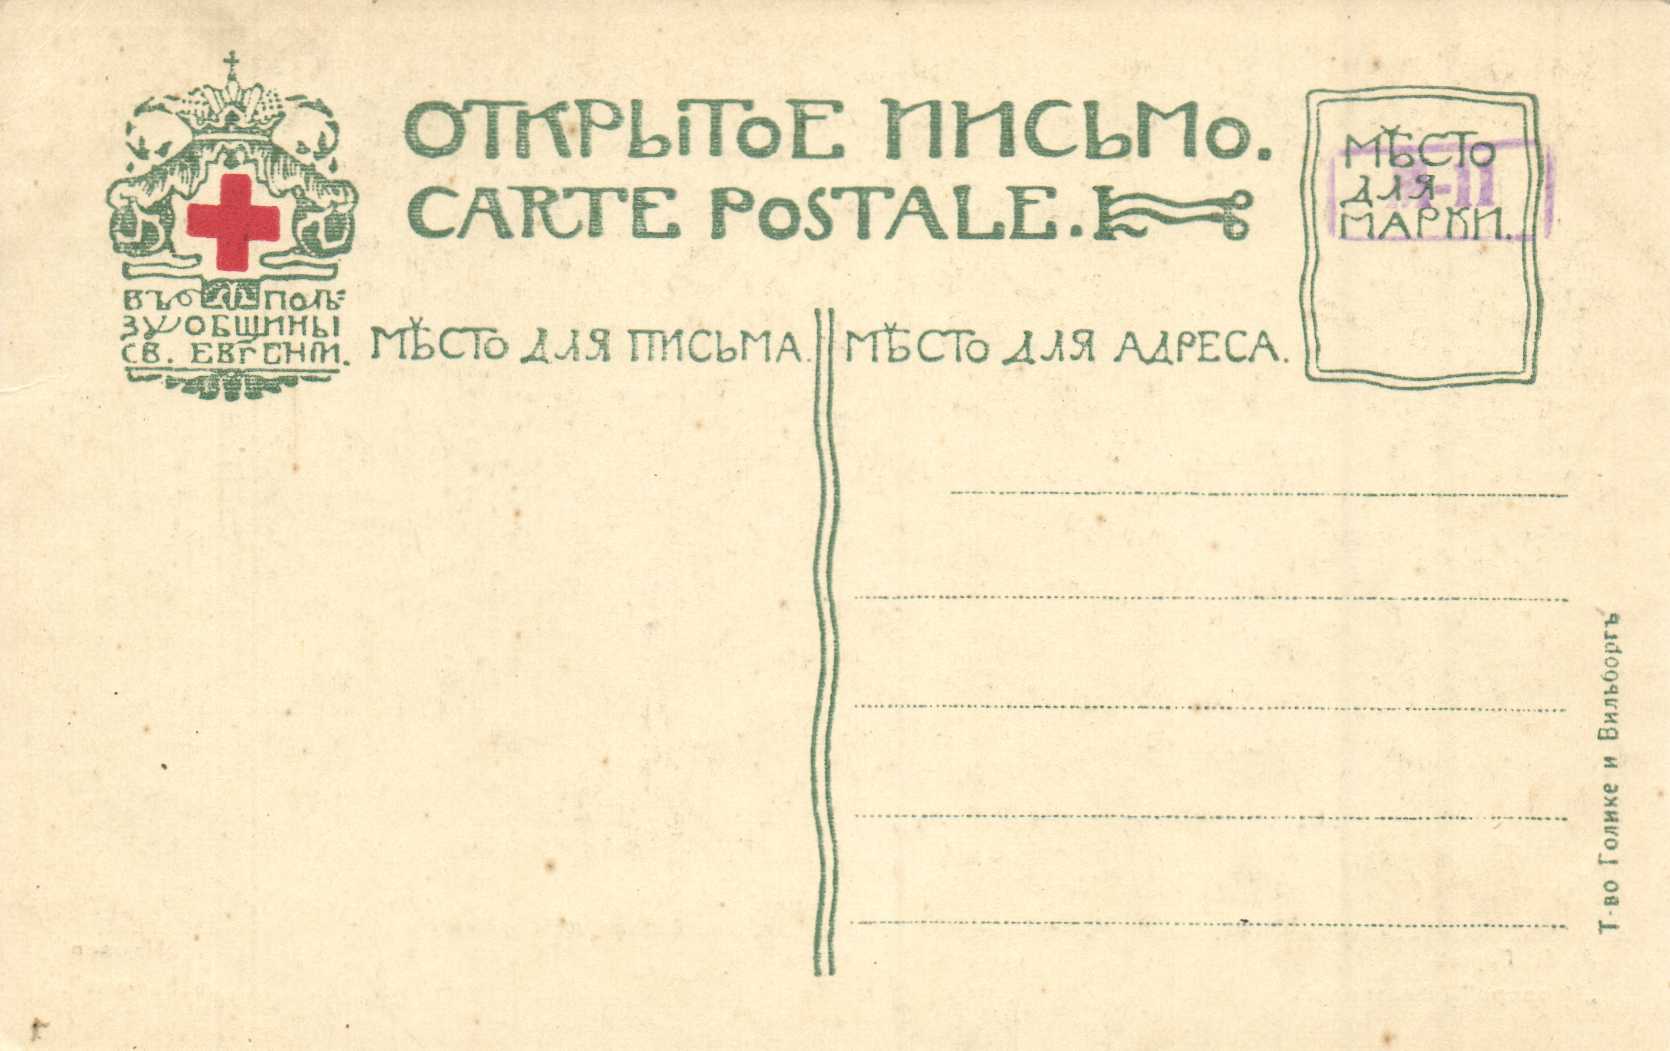 ОТКРЫТОЕ ПИСЬМО.
CARTE POSTALE.
ВЪ ПОЛЬ=
ЗУ ОБЩИНЫ
СВ. ЕВГЕНIИ.
МѢСТО ДЛЯ ПИСЬМА.
МѢСТО ДЛЯ АДРЕСА.
МѢСТО
ДЛЯ
МАРКИ.
Т-во Голике и Вильборгъ